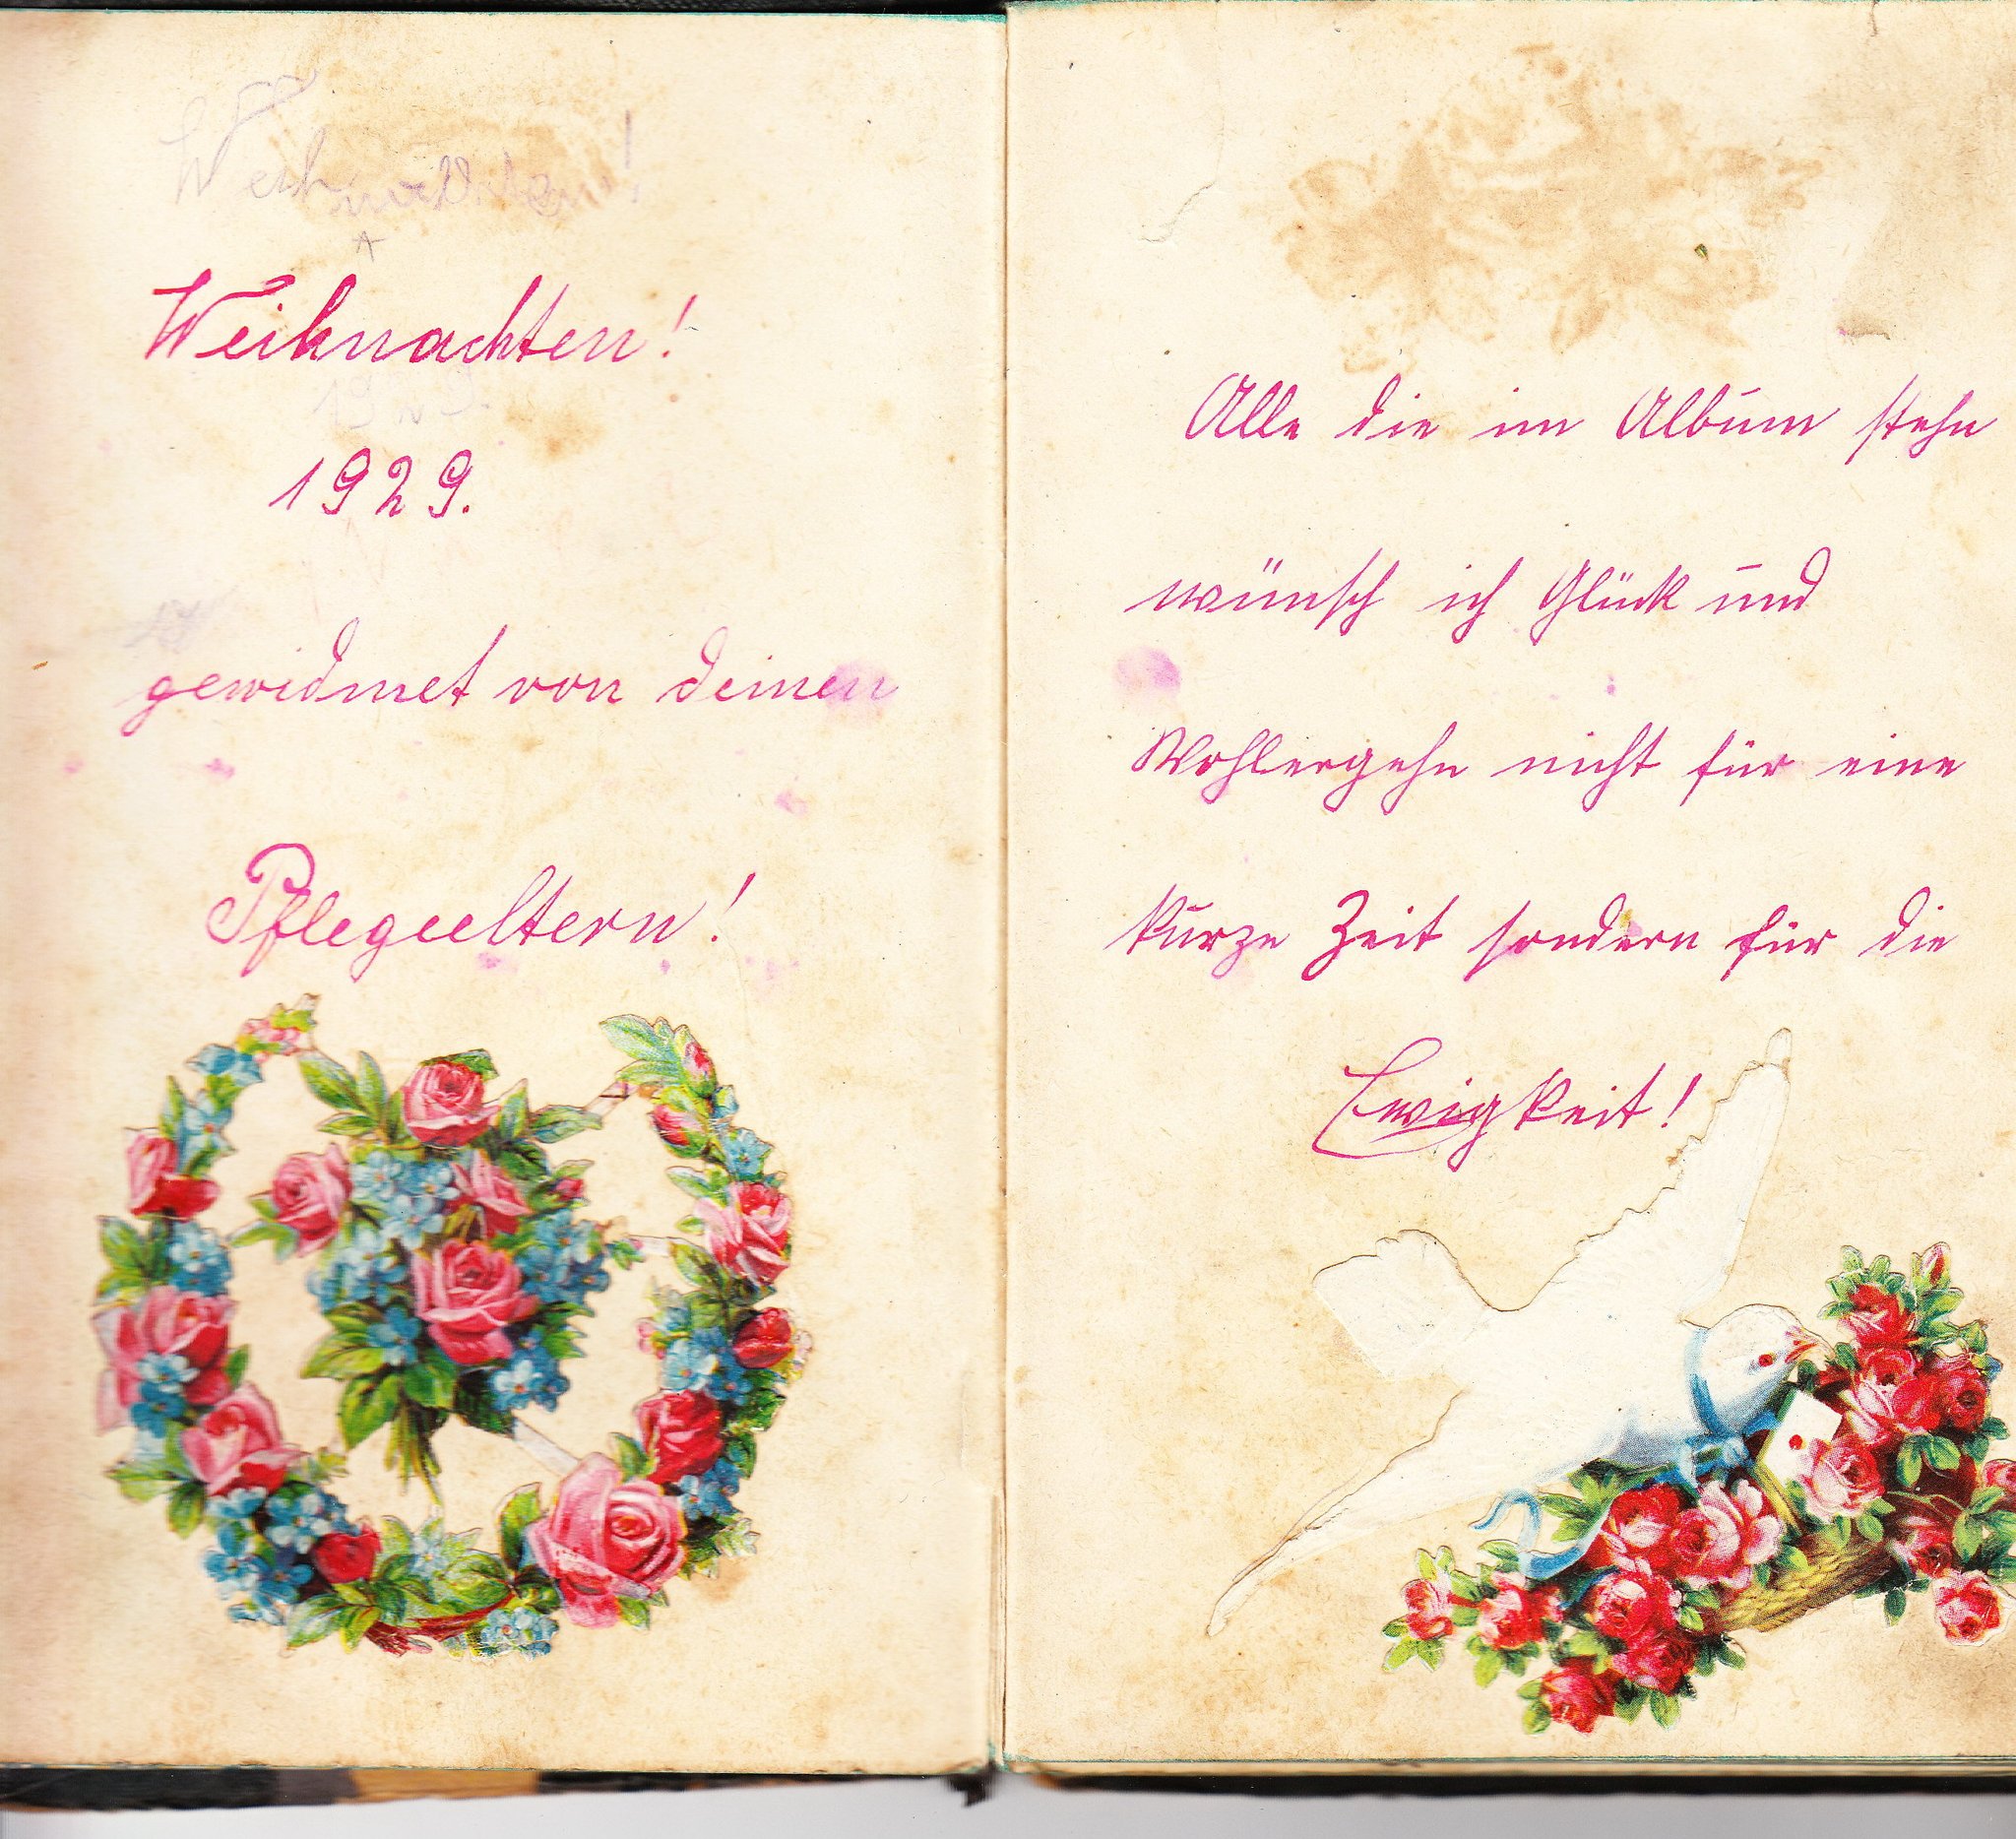 Weihnachten!
Weihnachten!
1929.
1929.
gewidmet von deinen
Pflegeeltern!
Alle die im Album stehn
wünsch ich Glück und
Wohlergehn nicht für eine
kurze Zeit sondern für die
Ewigkeit!